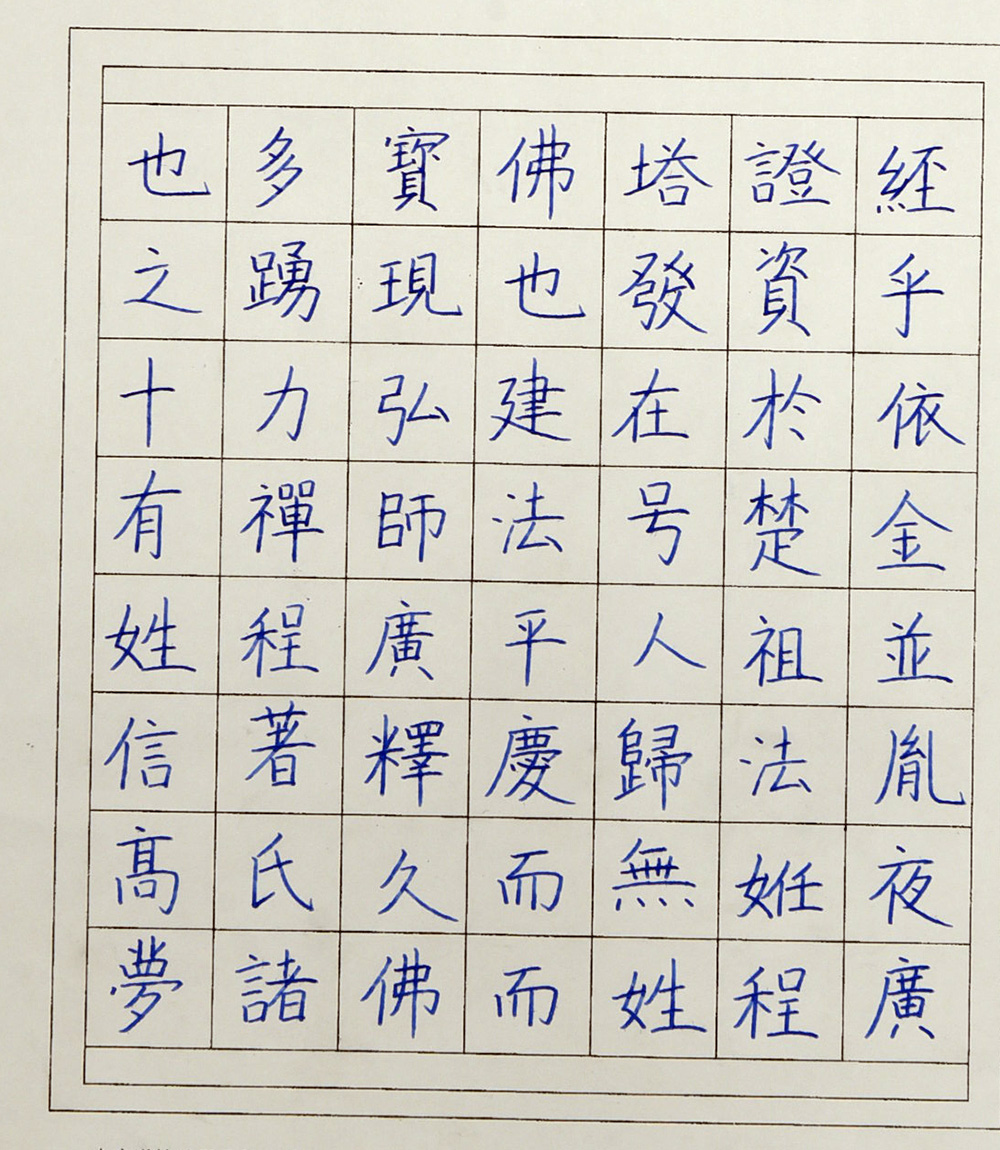 也多寶佛塔證經
之踴現也發資乎
十力弘建在於依
有禪師法号楚金
姓程廣平人祖並
信著釋慶歸法胤
髙氏久而無姙夜
夢諸佛而姓程廣